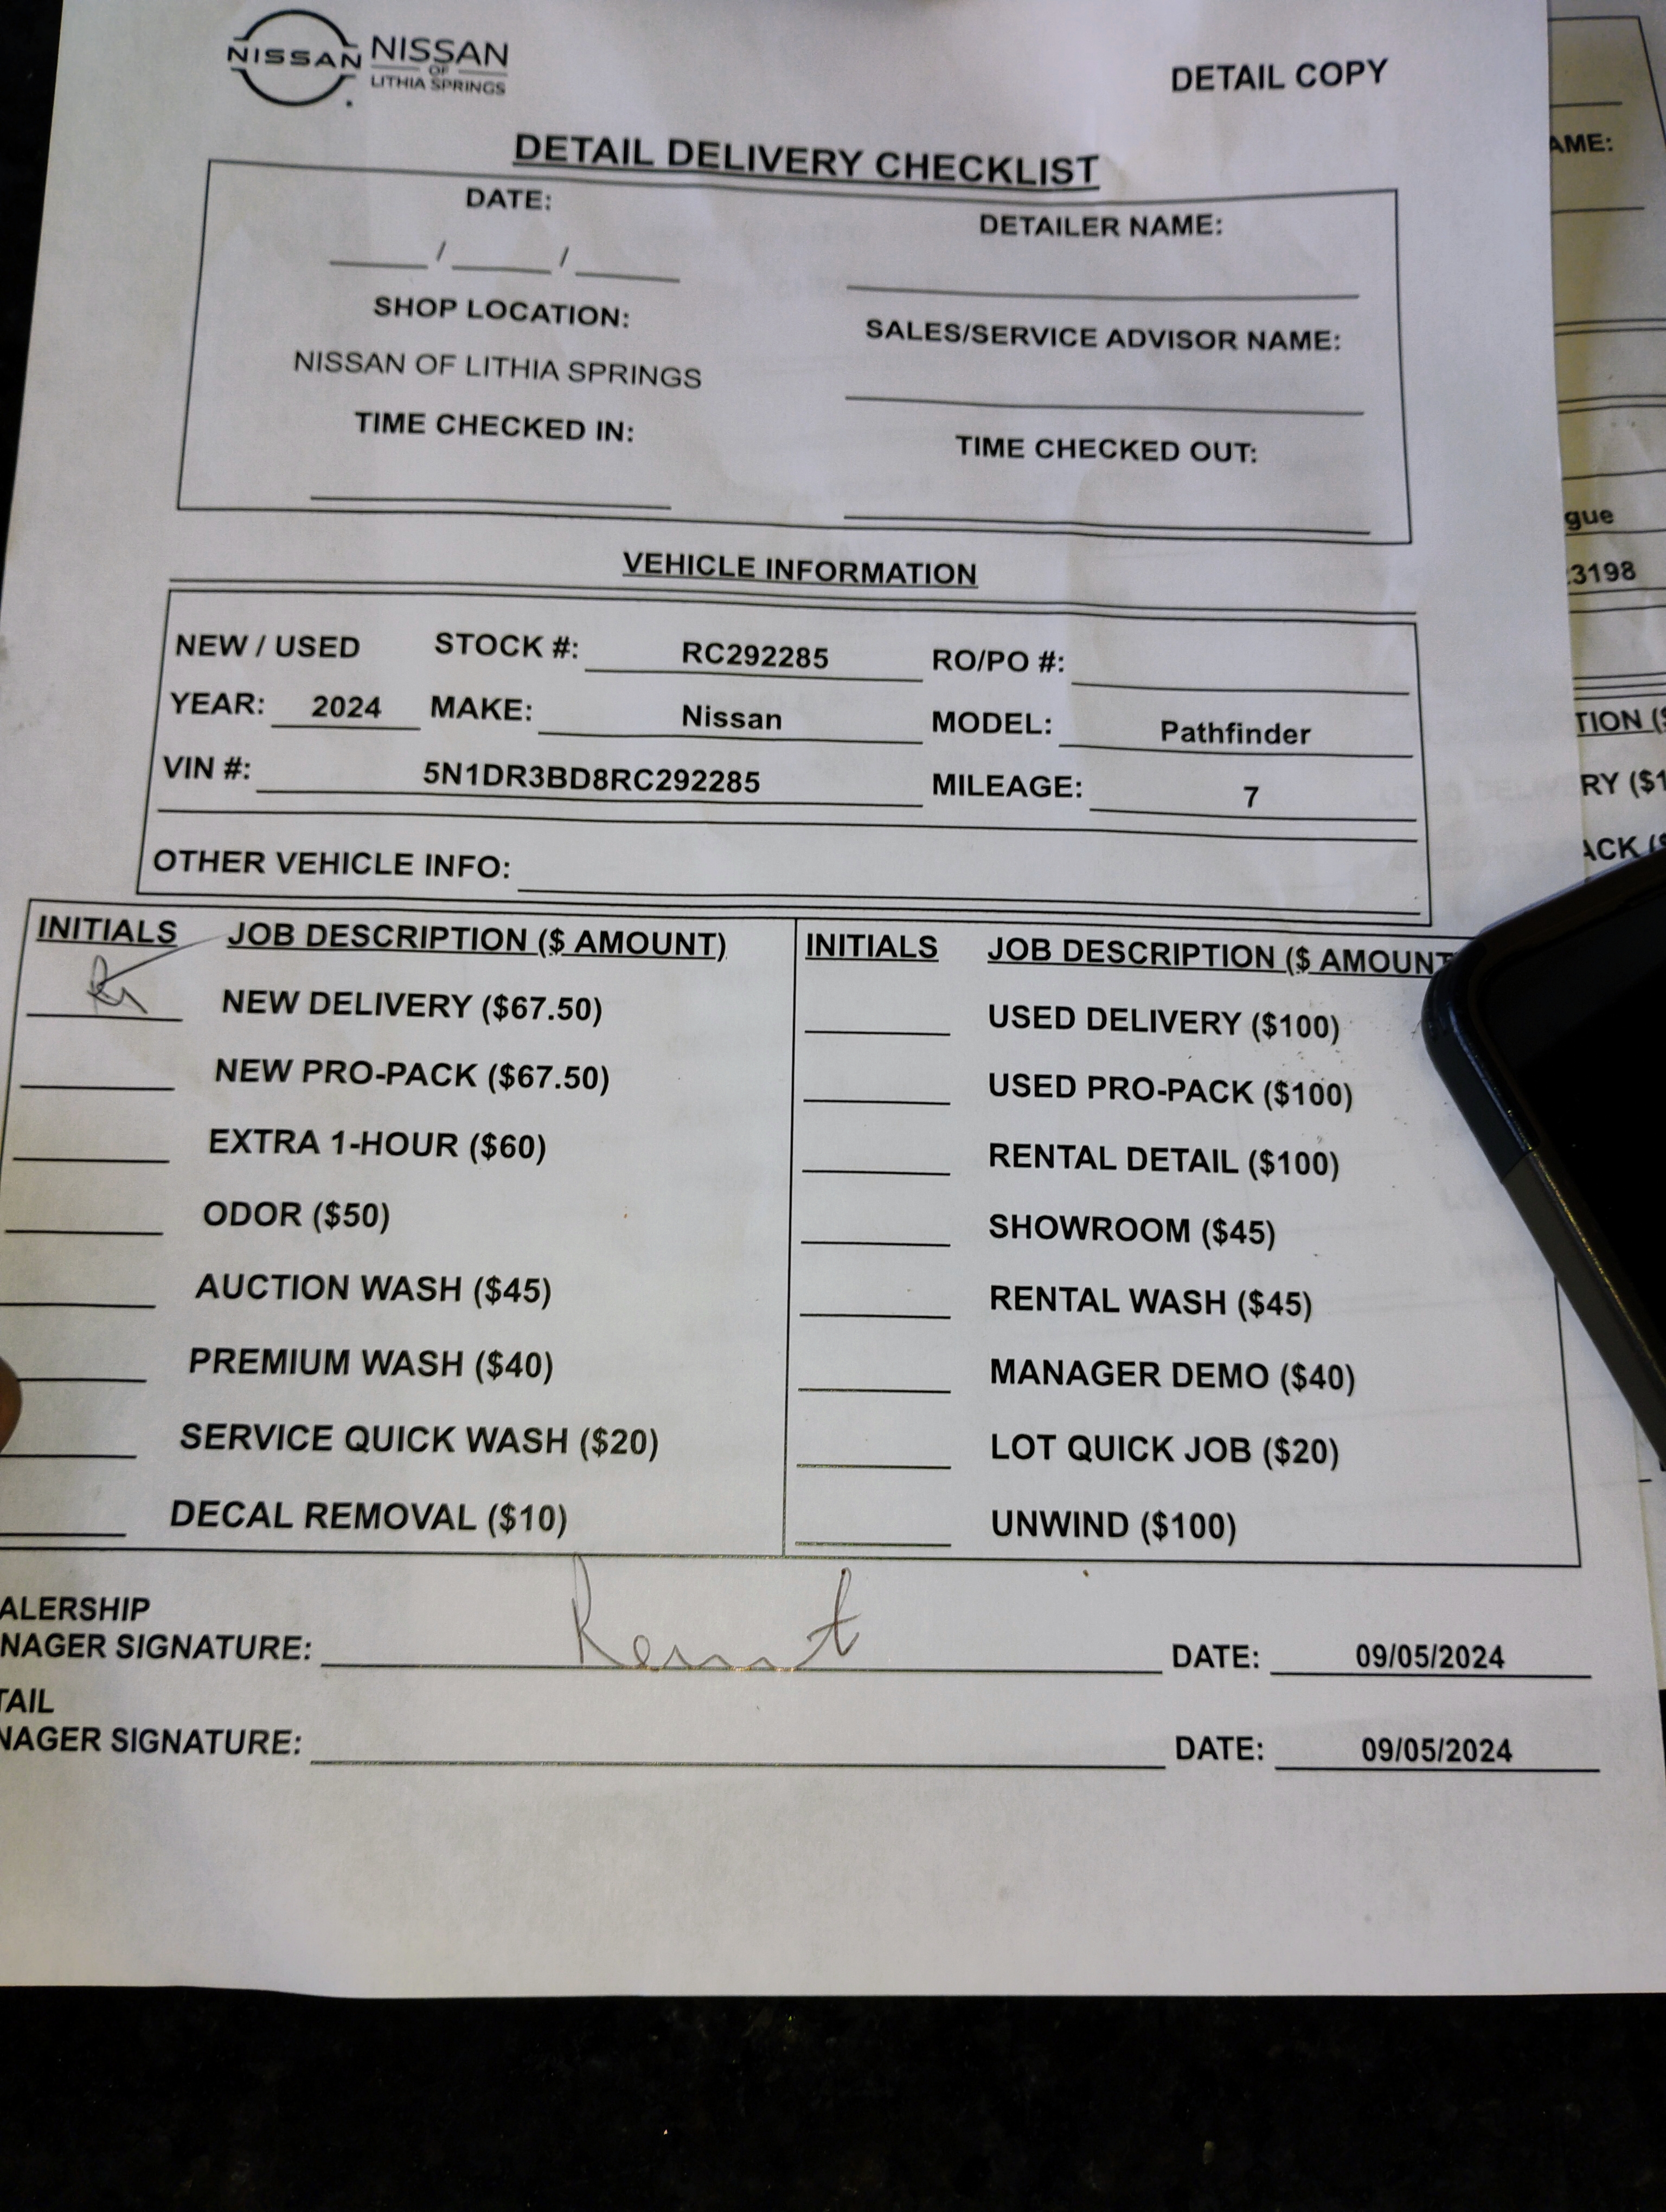 NISSAN NISSAN
OF
LITHIA SPRINGS
DETAIL COPY
DETAIL DELIVERY CHECKLIST
DATE:
DETAILER NAME:
____ / ____ / ____
SHOP LOCATION:
SALES/SERVICE ADVISOR NAME:
NISSAN OF LITHIA SPRINGS
TIME CHECKED IN:
TIME CHECKED OUT:
VEHICLE INFORMATION
NEW / USED STOCK #: RC292285 RO/PO #:
YEAR: 2024 MAKE: Nissan MODEL: Pathfinder
VIN #: 5N1DR3BD8RC292285 MILEAGE: 7
OTHER VEHICLE INFO:
INITIALS JOB DESCRIPTION ($ AMOUNT)
NEW DELIVERY ($67.50)
NEW PRO-PACK ($67.50)
EXTRA 1-HOUR ($60)
ODOR ($50)
AUCTION WASH ($45)
PREMIUM WASH ($40)
SERVICE QUICK WASH ($20)
DECAL REMOVAL ($10)
INITIALS JOB DESCRIPTION ($ AMOUNT
USED DELIVERY ($100)
USED PRO-PACK ($100)
RENTAL DETAIL ($100)
SHOWROOM ($45)
RENTAL WASH ($45)
MANAGER DEMO ($40)
LOT QUICK JOB ($20)
UNWIND ($100)
ALERSHIP
NAGER SIGNATURE: DATE: 09/05/2024
TAIL
NAGER SIGNATURE: DATE: 09/05/2024
AME:
gue
3198
TION ($
RY ($1
ACK ($